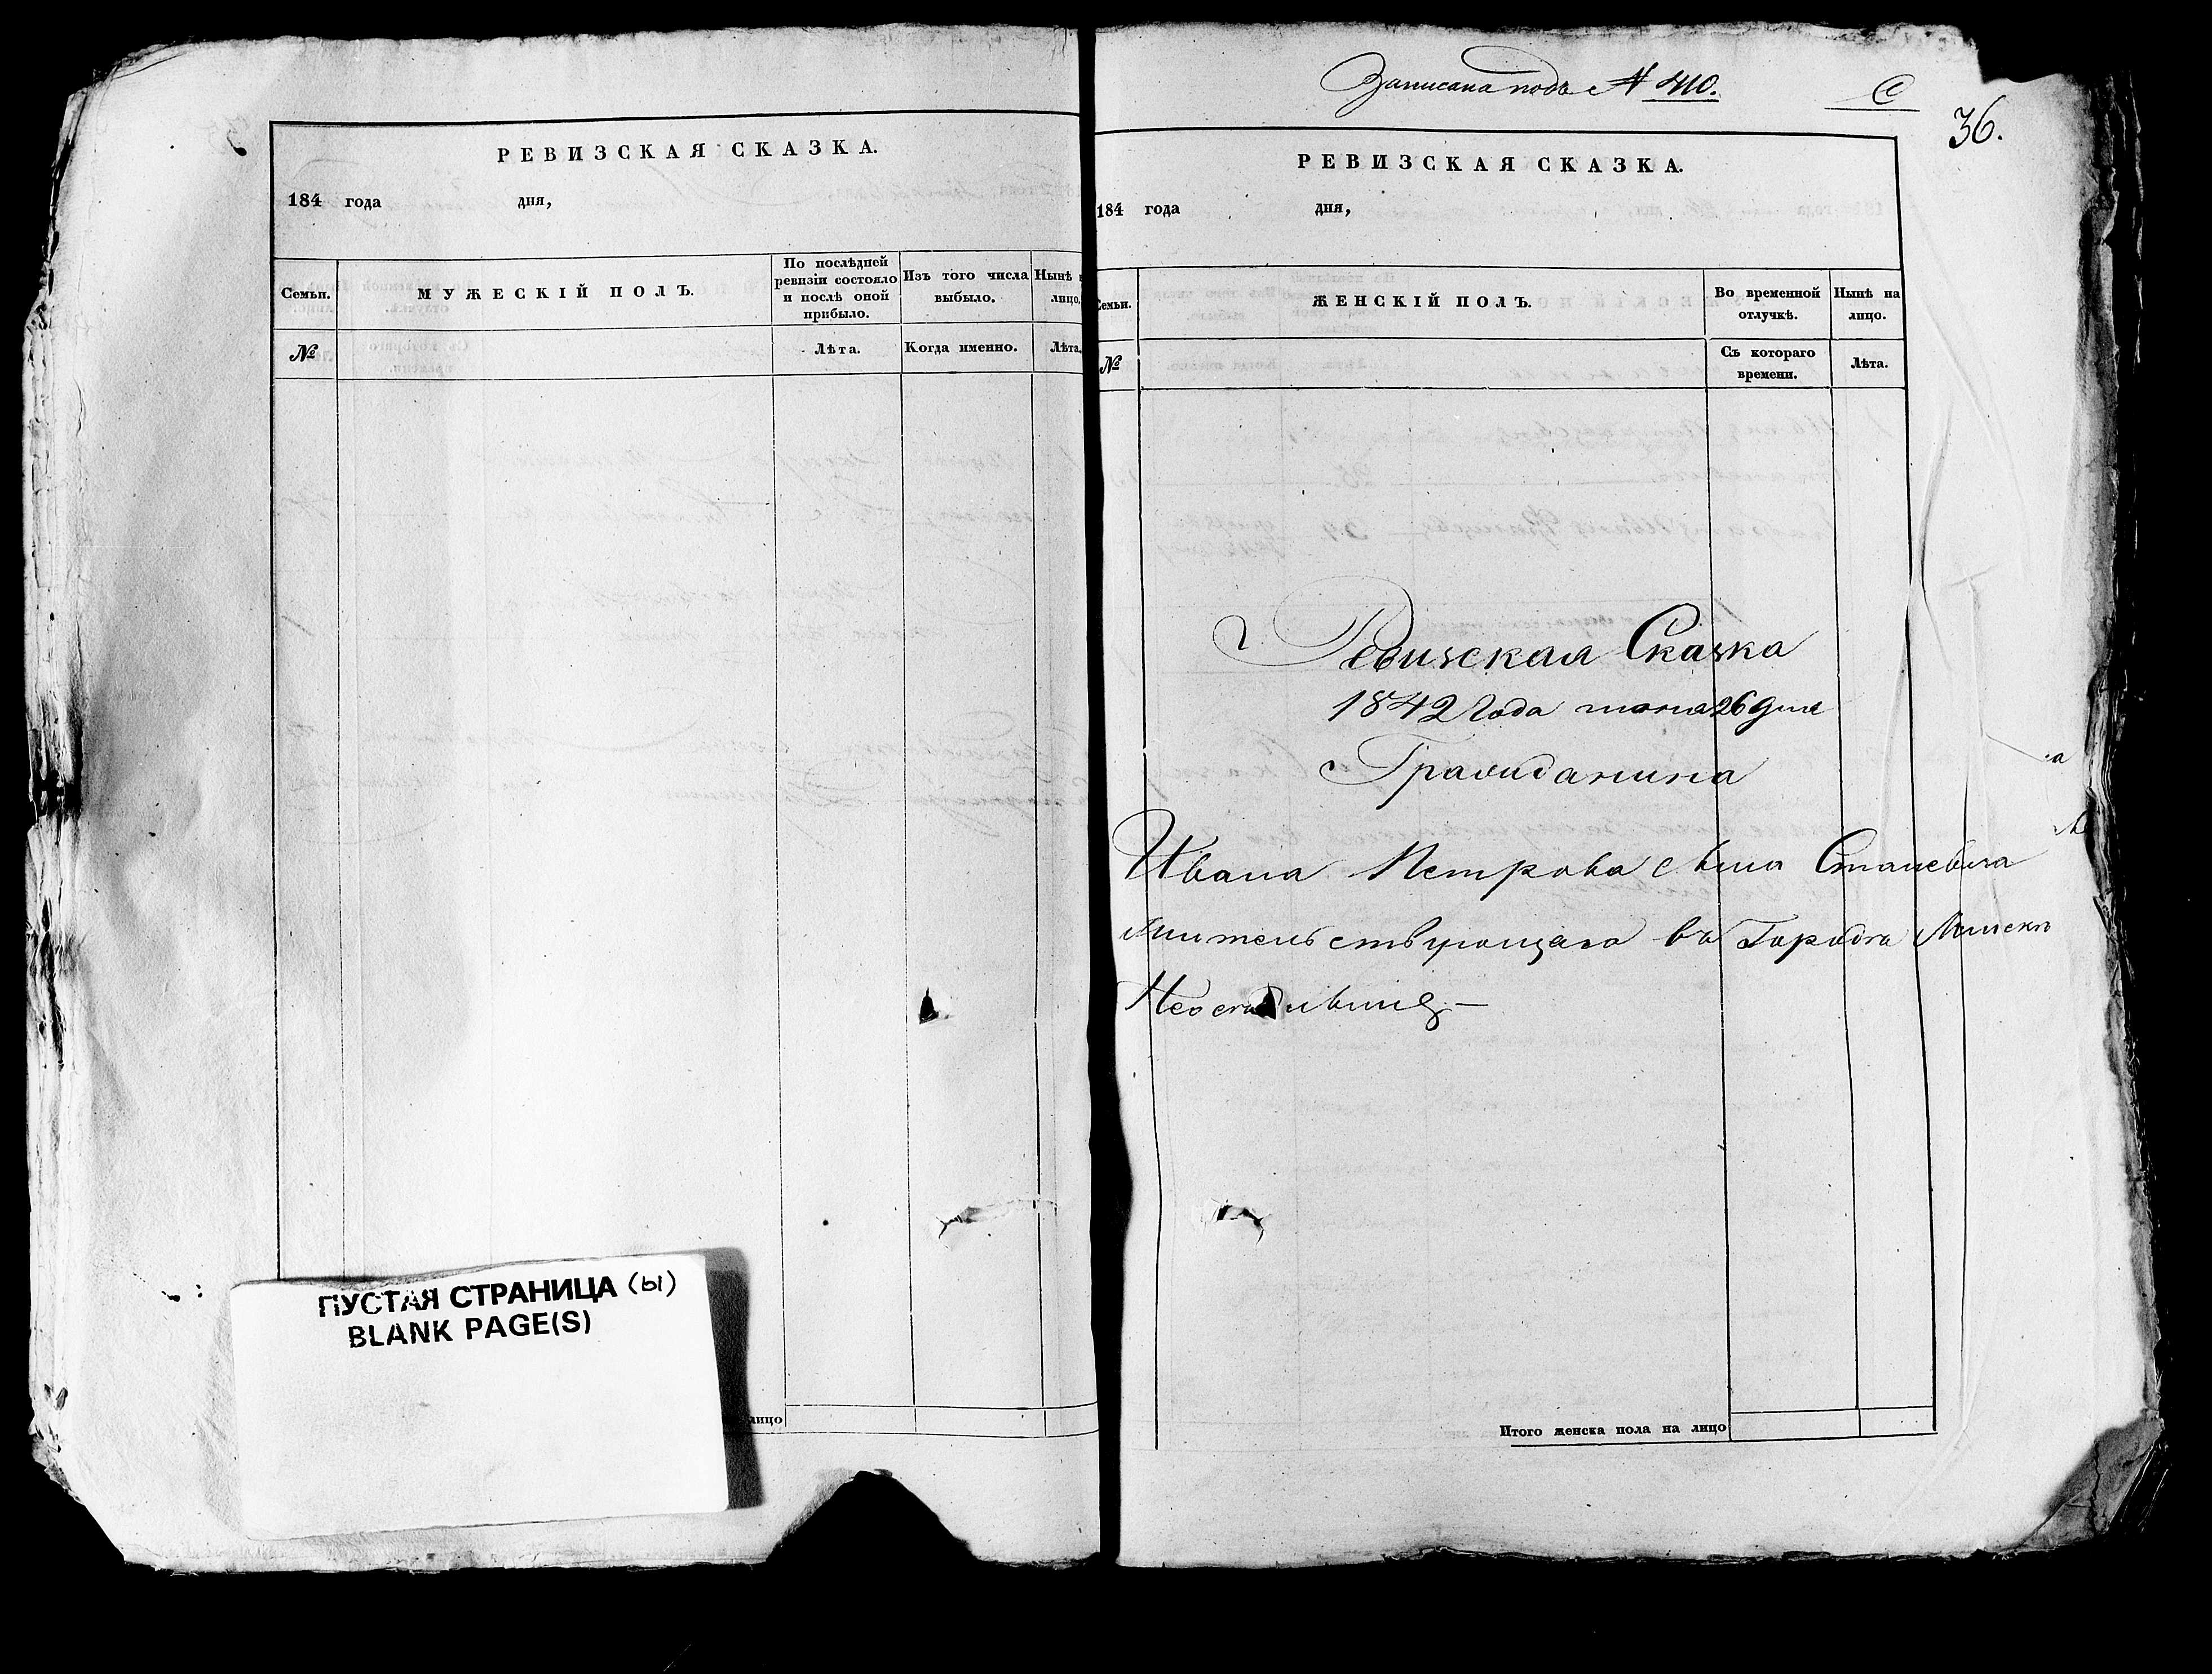 РЕВИЗСКАЯ СКАЗКА.
184 года дня,
Семьи. МУЖЕСКІЙ ПОЛЪ. По послѣдней ревизіи состояло и послѣ оной прибыло. Изъ того числа выбыло. Нынѣ лицо.
№ Лѣта. Когда именно. Лѣта.
лицо
ПУСТАЯ СТРАНИЦА (Ы)
BLANK PAGE(S)
Записана подъ № 410. С
36.
РЕВИЗСКАЯ СКАЗКА.
184 года дня,
Семьи. ЖЕНСКІЙ ПОЛЪ. Во временной отлучкѣ. Нынѣ на лицо.
№ Съ котораго времени. Лѣта.
Ревизская Сказка
1842 Года 26 дня
Гражданина
Ивана Петрова сына Станевича
жительствующаго въ Городѣ Минскѣ
Итого женска пола на лицо